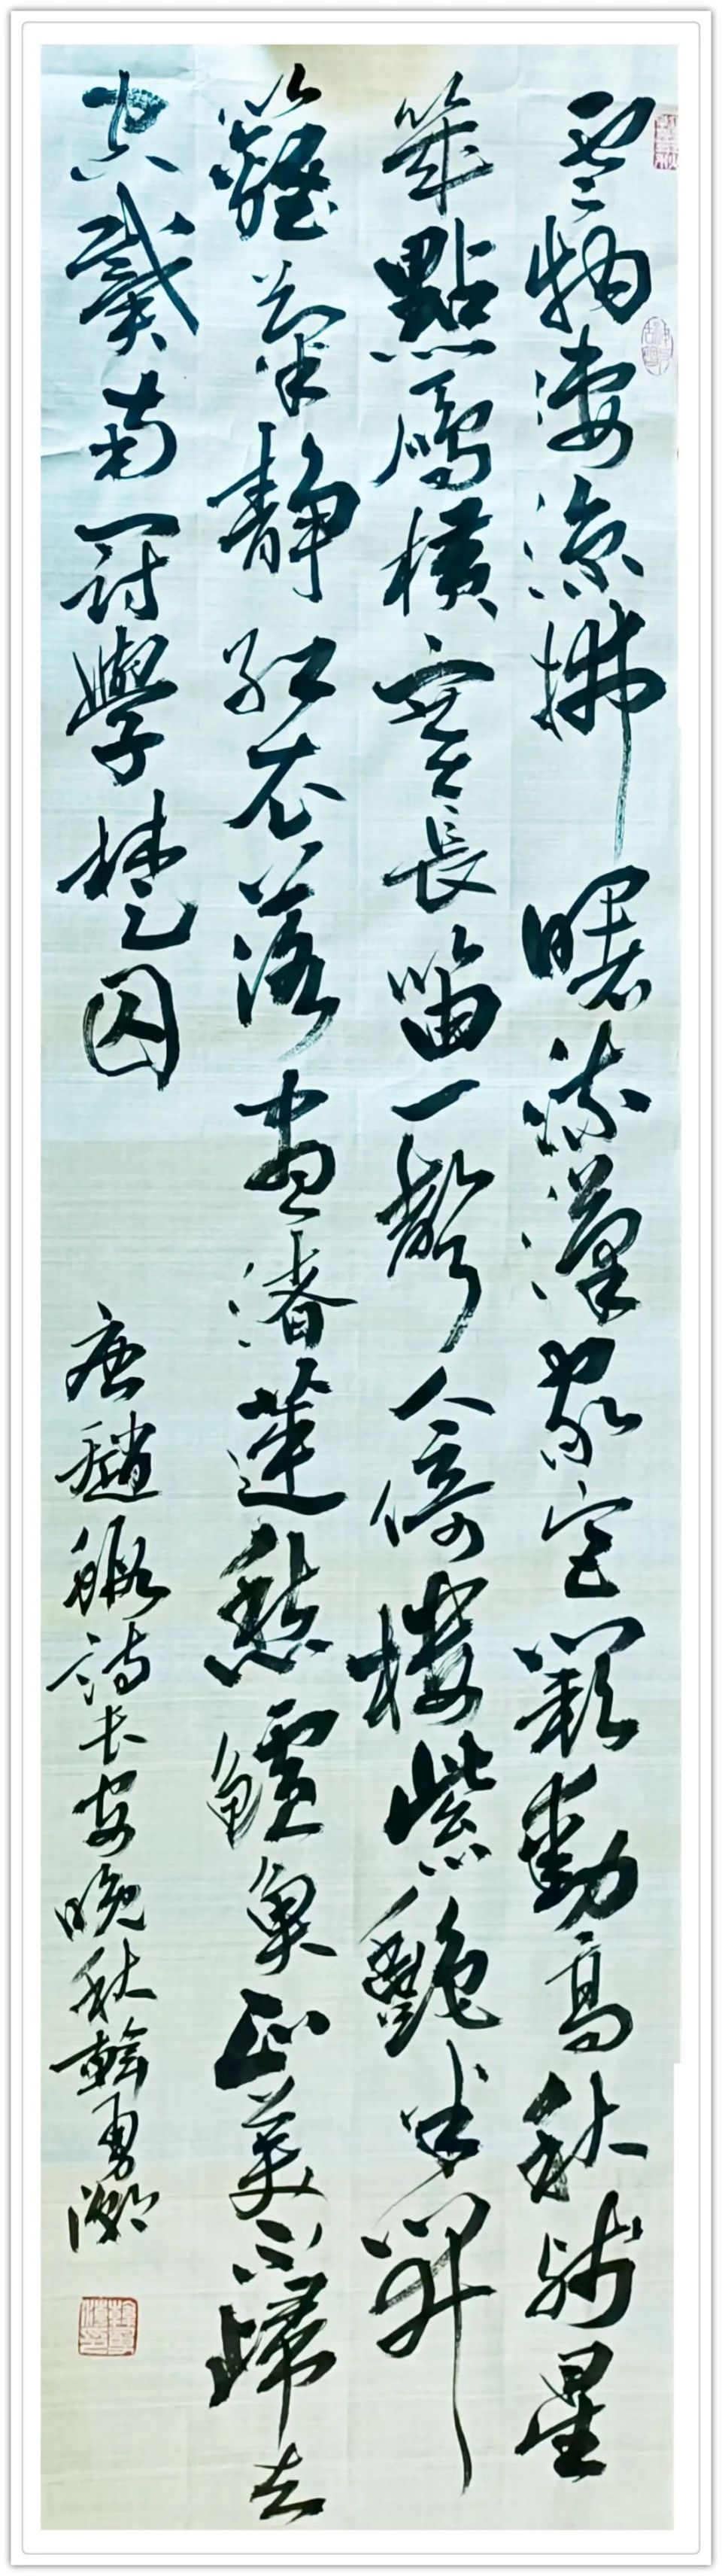 雲物淒涼拂曙流漢家宮闕動高秋殘星
幾點鴈橫塞長笛一聲人倚樓紫艷半開
籬菊靜紅衣落盡渚蓮愁鱸魚正美不歸去
空戴南冠學楚囚
唐趙嘏詩長安晚秋韓勇